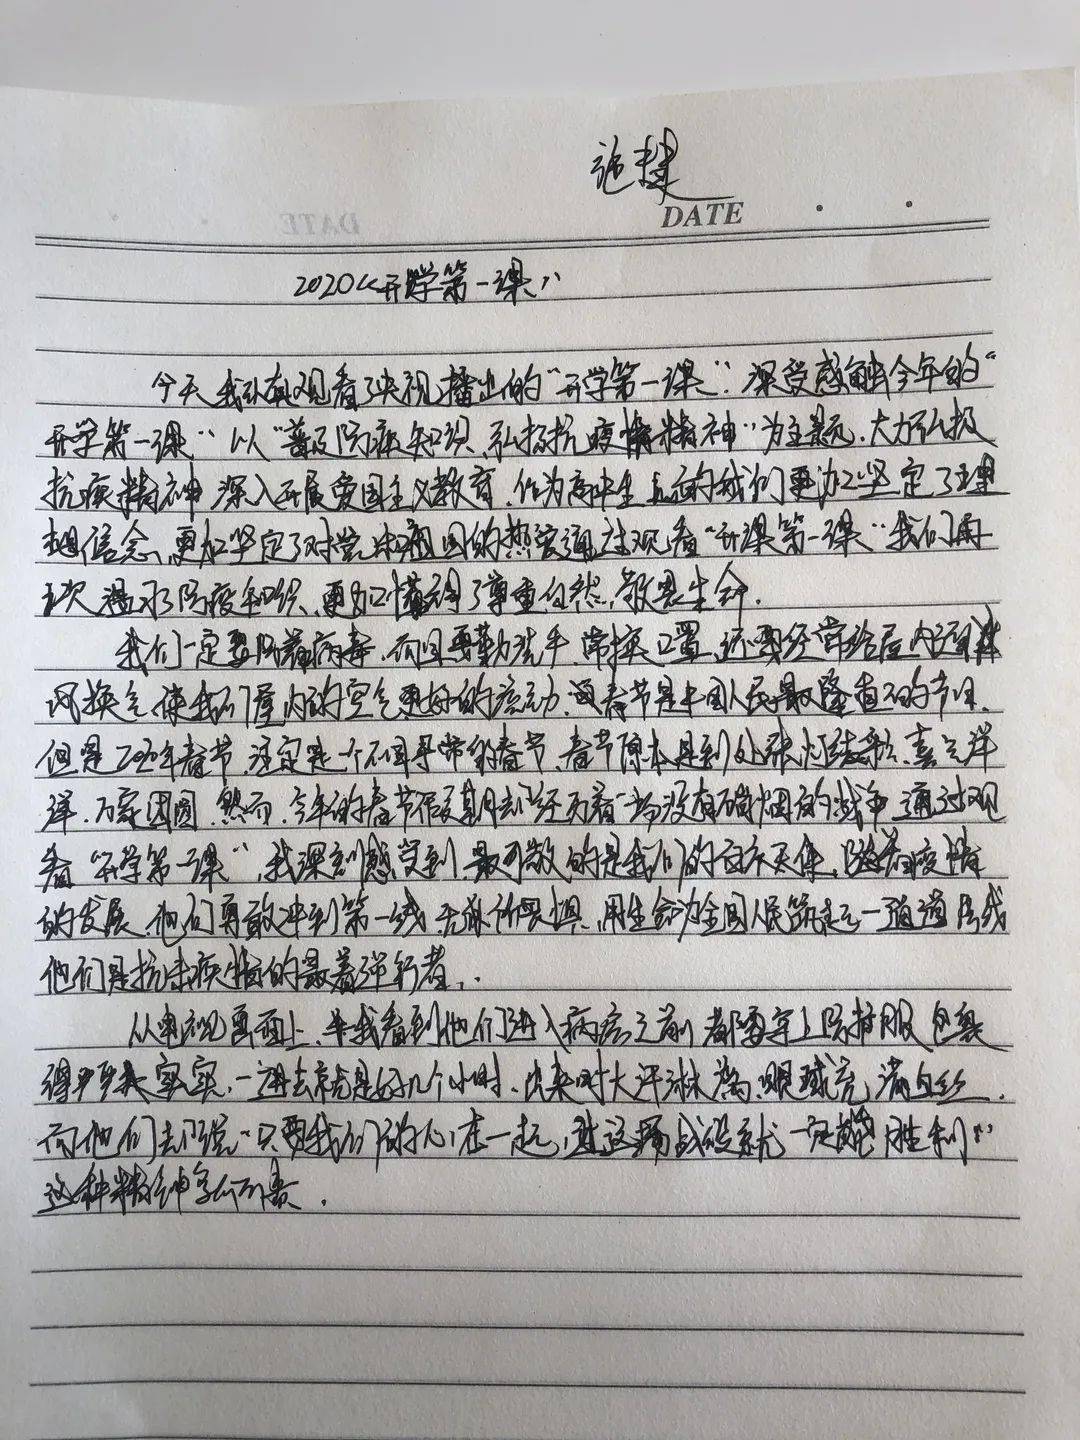 DATE
DATE
2020《开学第一课》
今天我认真观看了央视播出的"开学第一课"．深受感触今年的"
开学第一课"以"普及防疫知识,弘扬抗疫情精神"为主题．大力弘扬
抗疫精神 深入开展爱国主义教育．作为高中生 的我们更加坚定了理
想信念,更加坚定了对党和祖国的热爱通过观看"开课第一课"我们再
次 了防疫知识,更加懂得了尊重自然,敬畏生命．
我们一定要 病毒．而且要勤洗手,常换口罩,还要经常给屋内通
风换气,使我们屋内的空气更好的流动． 春节是中国人民最隆重的节日．
但是2020年春节,注定是一个不同寻常的春节．春节原本是到处张灯结彩．喜气洋
洋．万家团圆．然而．今年的春节假期却经历着一场没有硝烟的战争 通过观
看"开学第一课",我深刻感受到,最可敬的是我们的白衣天使,随着疫情
的发展．他们勇敢冲到第一线 无所畏惧．用生命为全国人民筑起一道道防线
他们是抗 疫情的最美 行者．
从电视画面上．当我看到他们进入病房之前 都要穿上防护服 包裹
得严严实实．一进去就是好几个小时．出来时大汗淋漓,眼 充满血丝．
而他们却说"只要我们的心在一起, 这场战役就一定能胜利"
这种精神